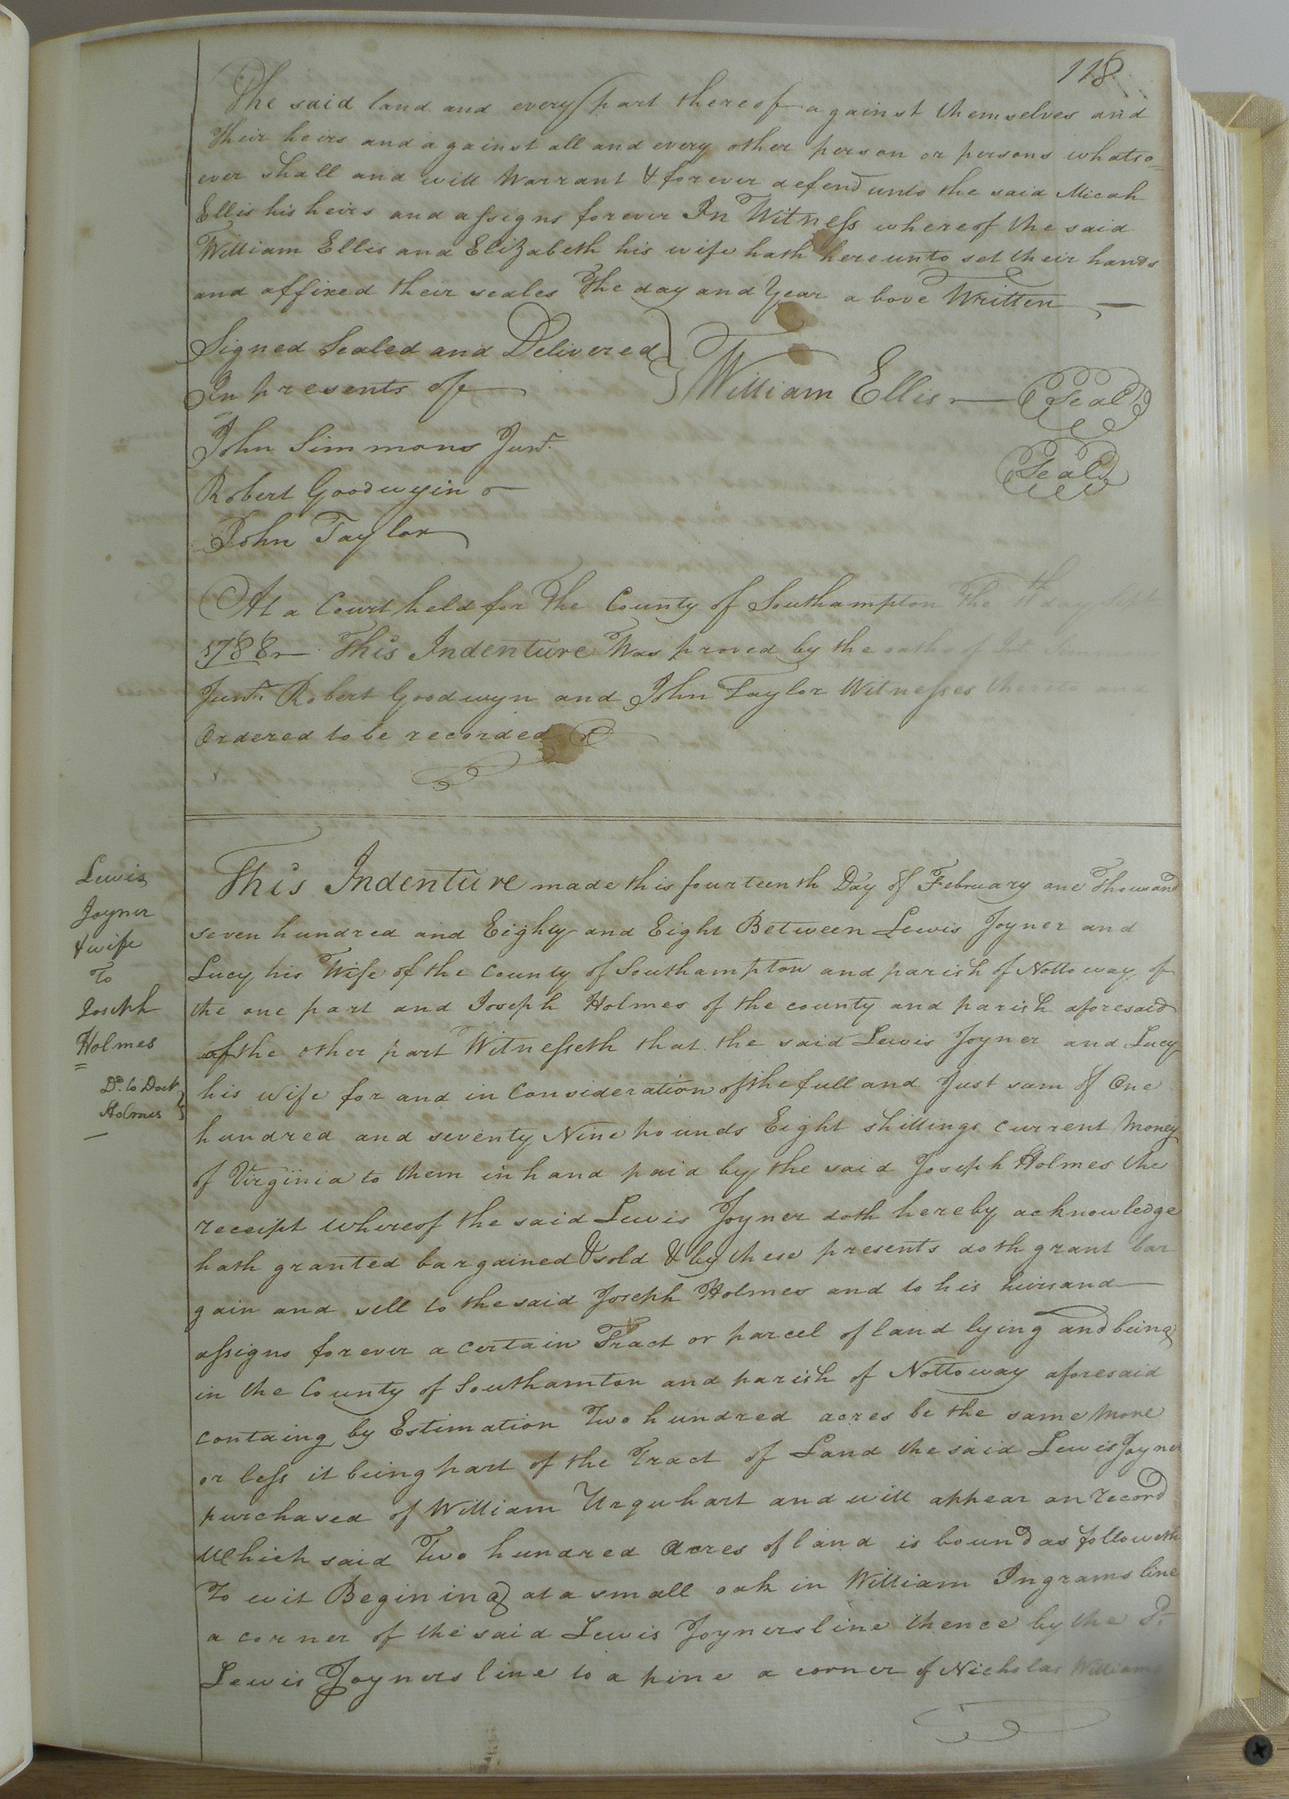 118
The said land and every part thereof against themselves and
their heirs and against all and every other person or persons whatso=
ever shall and will Warrant & forever defend unto the said Micah
Ellis his heirs and assigns forever In Witness whereof the said
William Ellis and Elizabeth his wife hath hereunto set their hands
and affixed their seales The day and Year above Written
Signed Sealed and Delivered
In presents of
William Ellis
Seal
John Simmons Junr.
Seal
Robert Goodwyin
John Taylor
At a Court held for The County of Southampton The day
1788 This Indenture Was proved by the oaths of
Junr. Robert Goodwyn and John Taylor Witnesses thereto and
Ordered to be recorded
Lewis
Joyner
& wife
To
Joseph
Holmes
Do. to Dock
Holmes
This Indenture made this fourteenth Day of February one Thousand
seven hundred and Eighty and Eight Between Lewis Joyner and
Lucy his Wife of the County of Southampton and parish of Nottoway of
the one part and Joseph Holmes of the county and parish aforesaid
of the other part Witnesseth that the said Lewis Joyner and Lucy
his wife for and in Consideration of the full and Just sum of One
hundred and seventy Nine pounds Eight shillings current Money
of Virginia to them in hand paid by the said Joseph Holmes the
receipt whereof the said Lewis Joyner doth hereby acknowledge
hath granted bargained & sold & by these presents doth grant bar
gain and sell to the said Joseph Holmes and to his heirs and
assigns forever a certain Tract or parcel of land lying and being
in the County of Southamton and parish of Nottoway aforesaid
containg by Estimation Two hundred acres be the same More
or less it being part of the Tract of Land the said Lewis Joyner
purchased of William Urquhart and will appear on record
Which said Two hundred Acres of land is bound as followeth
To wit Begining at a small oak in William Ingrams line
a corner of the said Lewis Joyners line thence by the Sd.
Lewis Joyners line to a pine a corner of Nicholas Williams